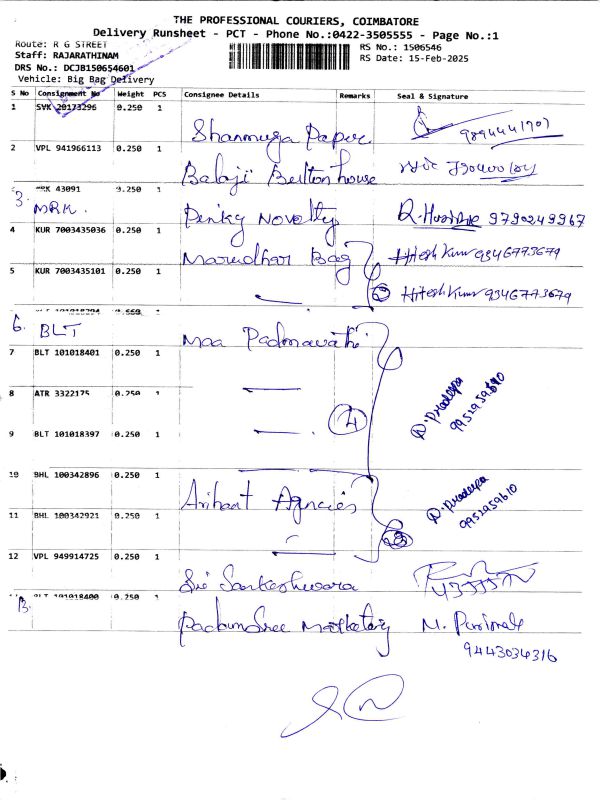 THE PROFESSIONAL COURIERS, COIMBATORE
Delivery Runsheet - PCT - Phone No.:0422-3505555 - Page No.:1
Route: R G STREET
Staff: RAJARATHINAM
DRS No.: DCJB150654601
Vehicle: Big Bag Delivery
RS No.: 1506546
RS Date: 15-Feb-2025
S No Consignment No Weight PCS Consignee Details Remarks Seal & Signature
1 SVK 20173296 0.250 1 Shanmuga Paper 9894441707
2 VPL 941966113 0.250 1 Balaji Button house
3. MRK 43091 0.250 1 Pinky Novelty 9790249967
MRK.
4 KUR 7003435036 0.250 1 Marudhar Bag Hitesh Kumar 9346773679
5 KUR 7003435101 0.250 1 Hitesh Kumar 9346773679
6. BLT Maa Padmavathi
7 BLT 101018401 0.250 1
8 ATR 3322175 0.250 1 4 D. Pradeepa 9952959610
9 BLT 101018397 0.250 1
10 BHL 100342896 0.250 1 Arihant Agncies D. Pradeepa 9952959610
11 BHL 100342921 0.250 1
12 VPL 949914725 0.250 1 Sri Sankeshwara
13. BLT 101018400 0.250 1 M.
9443034316